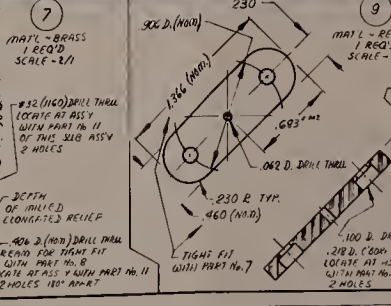 7
MAT'L - BRASS
1 REQ'D
SCALE - 2/1
#32 (.1160) DRILL THRU
LOCATE AT ASS'Y
WITH PART No 11
OF THIS SUB ASS'Y
2 HOLES
DEPTH
OF MILLED
ELONGATED RELIEF
.406 D. (NOM) DRILL THRU
REAM FOR TIGHT FIT
WITH PART No. 8
LOCATE AT ASS'Y WITH PART No. 11
2 HOLES 180° APART
.230
.906 D. (NOM)
1.366 (NOM.)
.683
.062 D. DRILL THRU
.230 R TYP.
.460 (NOM)
TIGHT FIT
WITH PART No. 7
9
MAT'L - RE
1 REQ'D
SCALE -
.100 D. DR
.218 D. C'BOR
LOCATE AT AS
WITH PART No
2 HOLES